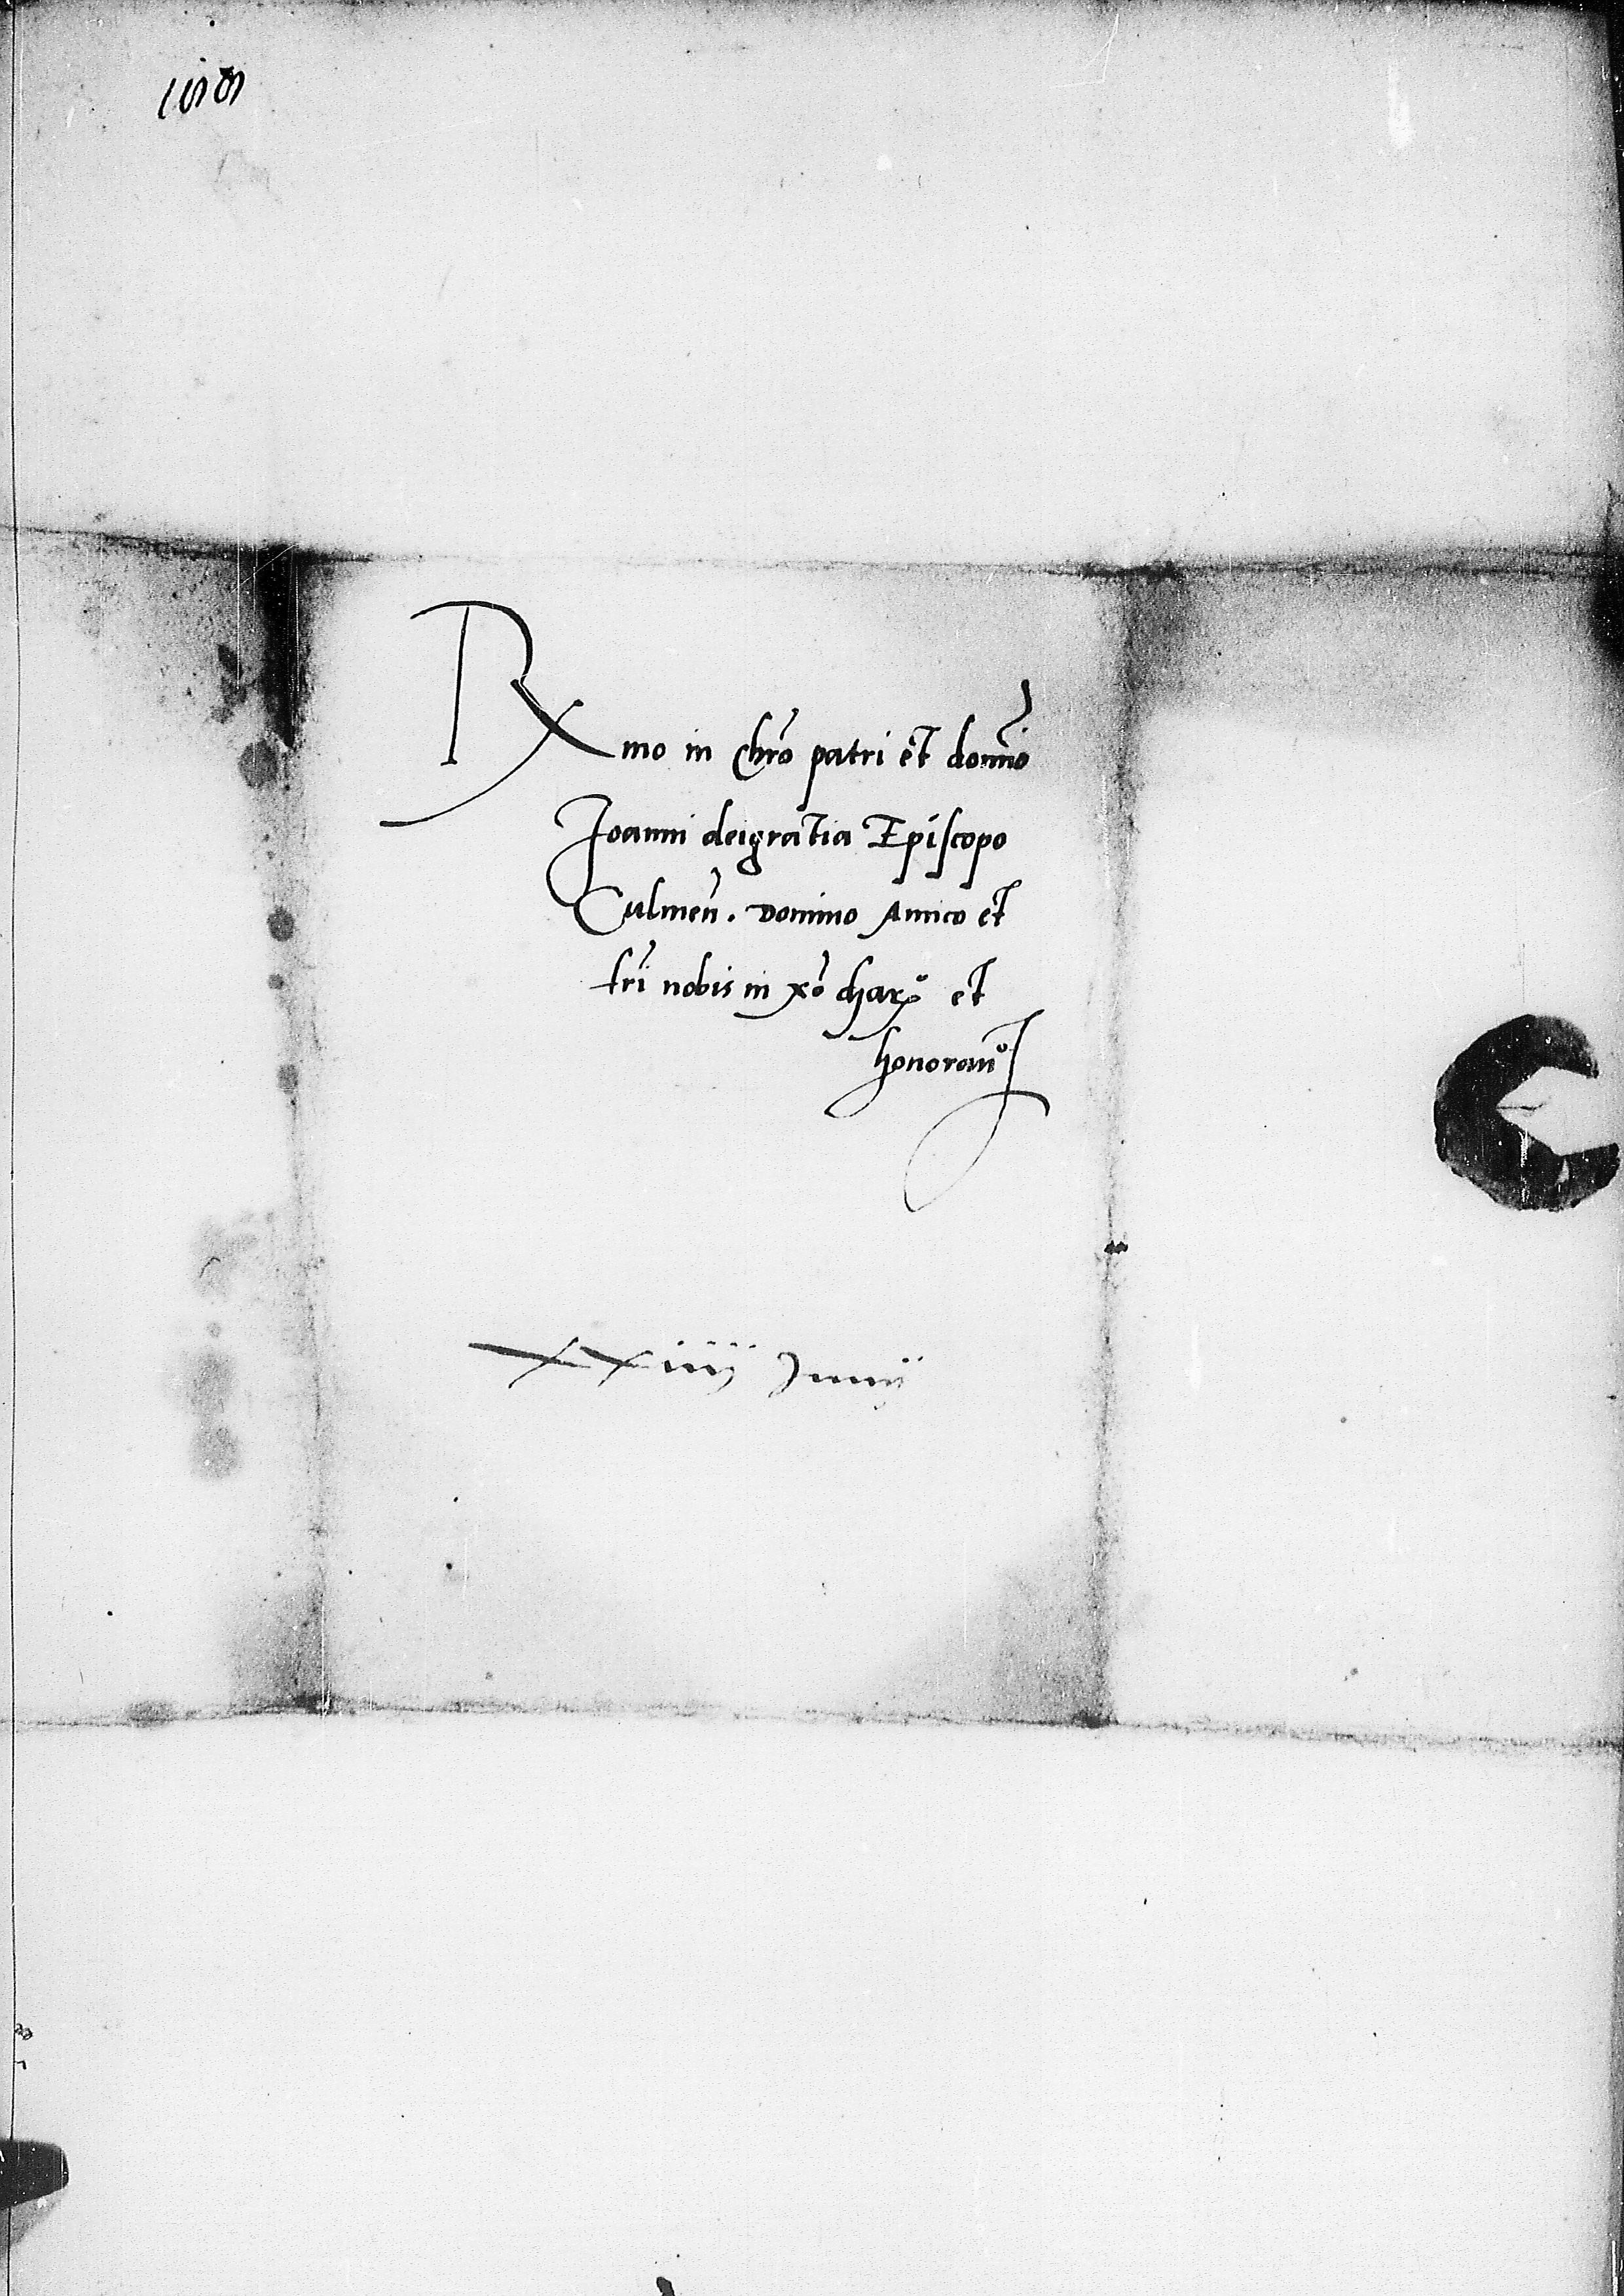 Rmo in Chro patri et domno
Joanni deigratia Episcopo
Culmen. Domino Amico et
fri nobis in xo charo et
honoran
xxiiij Junij